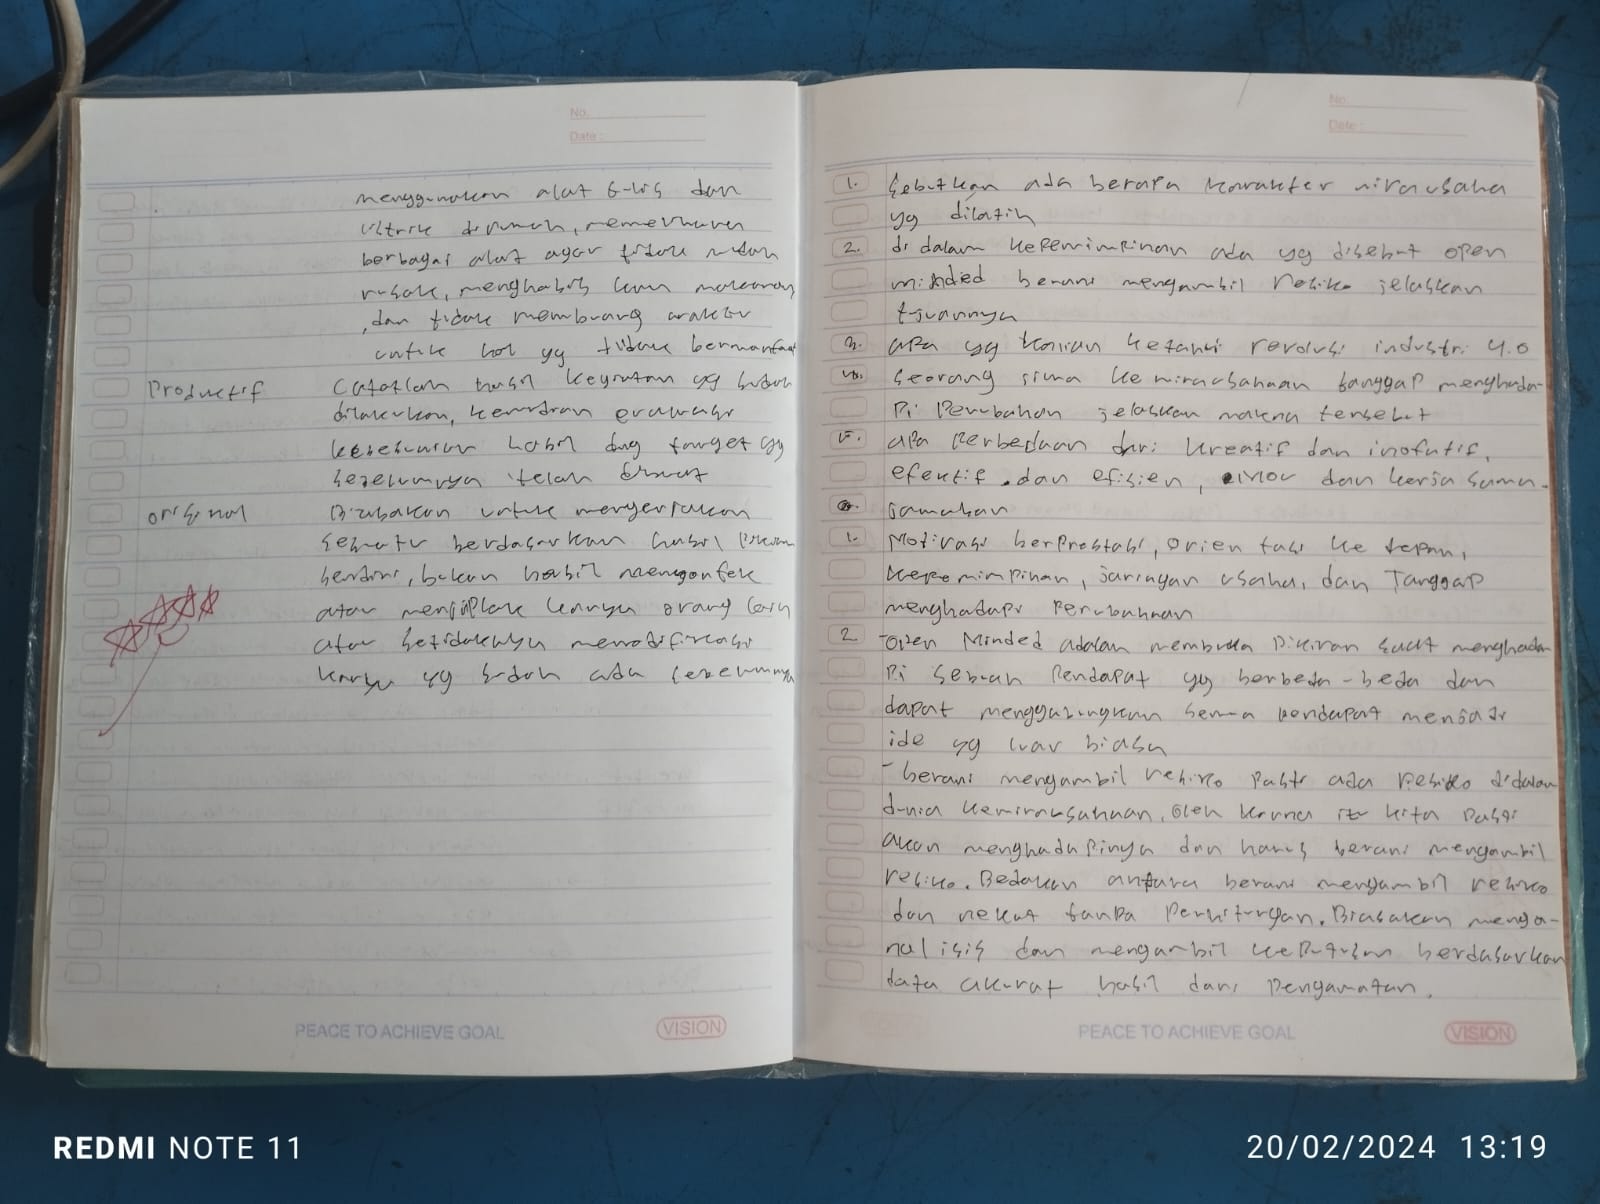 No.
Date :
menggunakan alat tulis dan
listrik dirumah, memelihara
berbagai alat agar tidak mudah
rusak, menghabiskan makanan
, dan tidak membuang waktu
untuk hal yg tidak bermanfaat
Productif
Catatlah hasil kegiatan yg sudah
dilakukan, kemudian evaluasi
kesesuaian hasil dng target yg
sebelumnya telah dibuat
orisinal
Biasakan untuk mengerjakan
sesuatu berdasarkan hasil pikiran
sendiri, bukan hasil mengontek
atau menjiplak karya orang lain
atau setidaknya memodifikasi
karya yg sudah ada sebelumnya
PEACE TO ACHIEVE GOAL
VISION
No.
Date :
1. Sebutkan ada berapa karakter wirausaha
yg dilatih
2. di dalam kepemimpinan ada yg disebut open
minded berani mengambil resiko jelaskan
tujuannya
3. apa yg kalian ketahui revolusi industri 4.0
4. seorang siswa kewirausahaan tanggap menghada-
pi perubahan jelaskan makna tersebut
5. apa perbedaan dari kreatif dan inofatif,
efektif dan efisien, dan kerja sama.
Jawaban
1. Motivasi berprestasi, orientasi ke depan,
kepemimpinan, jaringan usaha, dan Tanggap
menghadapi perubahaan
2. -open Minded adalah membuka pikiran saat menghada
pi sebuah pendapat yg berbeda-beda dan
dapat menggabungkan semua pendapat menjadi
ide yg luar biasa
- berani mengambil resiko pasti ada resiko didalam
dunia kewirausahaan, oleh karna itu kita pasti
akan menghadapinya dan harus berani mengambil
resiko. Bedakan antara berani mengambil resiko
dan nekat tanpa perhitungan. Biasakan menga-
nalisis dan mengambil keputusan berdasarkan
data akurat hasil dari pengamatan.
PEACE TO ACHIEVE GOAL
VISION
REDMI NOTE 11
20/02/2024 13:19